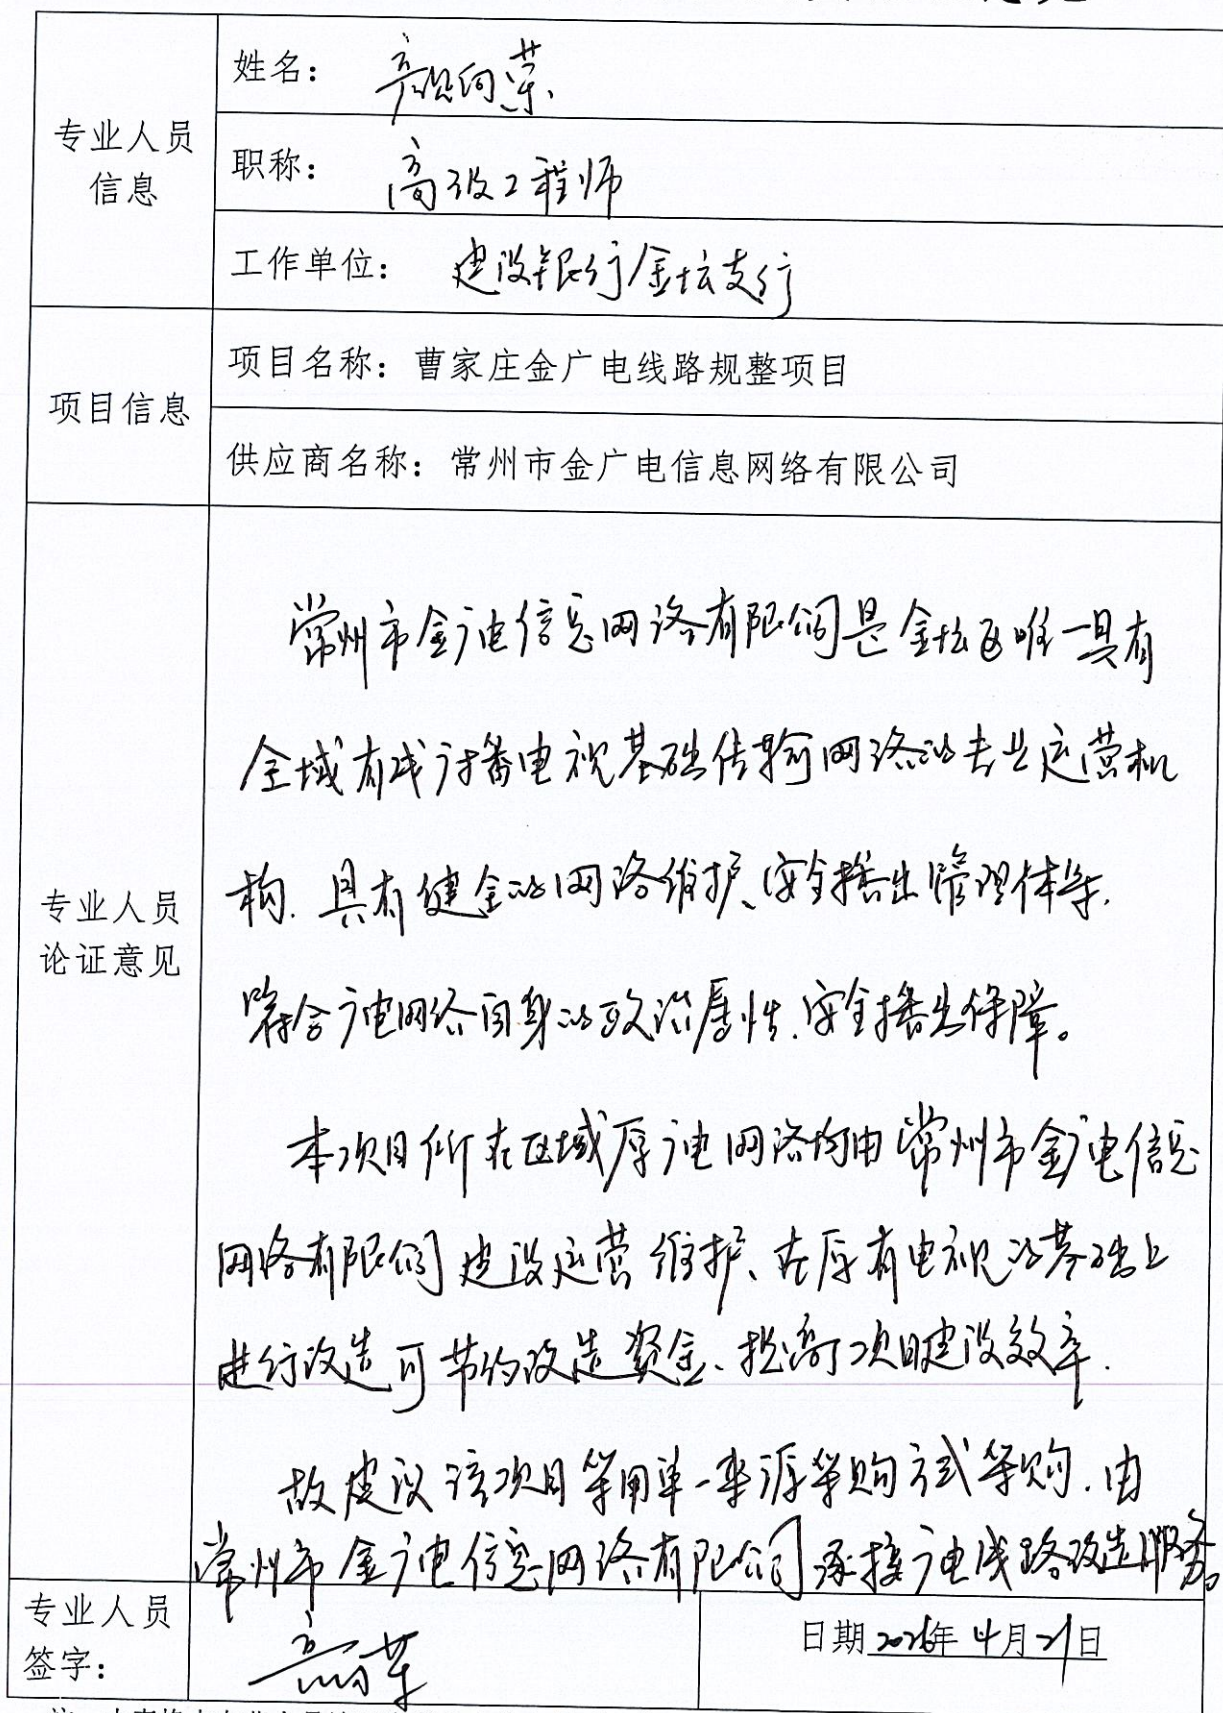 专业人员
信息
姓名： 颜向荣
职称： 高级工程师
工作单位： 建设银行金坛支行
项目信息
项目名称：曹家庄金广电线路规整项目
供应商名称：常州市金广电信息网络有限公司
专业人员
论证意见
常州市金广电信息网络有限公司是金坛区唯一具有
全域有线广播电视基础传输网络的专业运营机
构，具有健全的网络维护、安全播出管理体系，
符合广电网络自身的政治属性、安全播出保障。
本项目所在区域原广电网络均由常州市金广电信息
网络有限公司建设运营维护、在原有电视的基础上
进行改造可节约改造资金、提高项目建设效率.
故建议该项目采用单一来源采购方式采购，由
常州市金广电信息网络有限公司承接广电线路改造服务。
专业人员
签字：
日期 2026年 4月21日